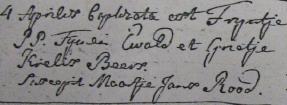 4 Aprilis baptizata est Tryntje
P.P. Tymen Ewald et Grietje
Kielis Beers.
Suscepit Maatje Jans Rood.